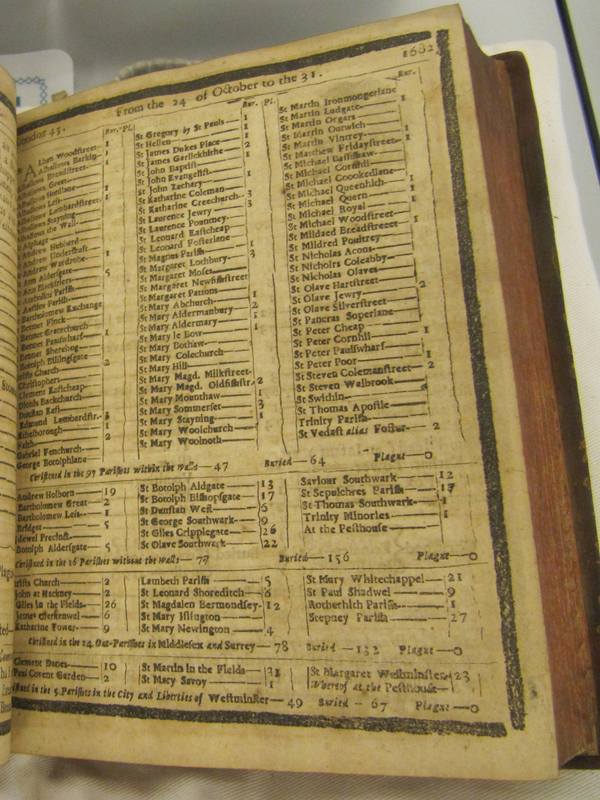 London 45. From the 24 of October to the 31. 1682
Bur. Pl. Bur. Pl. Bur.
Alban Woodstreet 1
Alhallows Barking 1
Alhallows Breadstreet
Alhallows Great
Alhallows Lumbardstreet
Alhallows Stayning
Alhallows the Wall
Alphage
Andrew Hubbard
Andrew Undershaft
Andrew Wardrobe
Ann Aldersgate 5
Ann Blackfriers
Bartholomew Exchange
Bennet Finck
Bennet Gracechurch
Bennet Paulswharf
Bennet Sherehog
Botolph Billingsgate
Christs Church 2
Christophers
Clement Eastcheap
Dionis Backchurch
Dunstan East
Edmund Lambardstr.
Ethelborough 1
Faith 2
Gabriel Fenchurch
George Botolphlane
St Gregory by St Pauls 1
St Hellen 1
St James Dukes Place 1
St James Garlickhithe 2
St John Baptist 1
St John Evangelist
St John Zachary
St Katharine Coleman 1
St Katharine Creechurch 3
St Laurence Jewry
St Laurence Pountney
St Leonard Eastcheap
St Leonard Fosterlane
St Magnus Parish 1
St Margaret Lothbury 3
St Margaret Moses
St Margaret Newfishstreet
St Margaret Pattons 1
St Mary Abchurch 2
St Mary Aldermanbury 1
St Mary Aldermary 1
St Mary le Bow
St Mary Bothaw
St Mary Colechurch
St Mary Hill
St Mary Magd. Milkstreet
St Mary Magd. Oldfishstr. 2
St Mary Mounthaw 1
St Mary Sommerset 3
St Mary Stayning 1
St Mary Woolchurch
St Mary Woolnoth
St Martin Ironmongerlane
St Martin Ludgate 1
St Martin Orgars
St Martin Outwich
St Martin Vintrey 1
St Matthew Fridaystreet
St Michael Bassishaw
St Michael Cornhil
St Michael Crookedlane
St Michael Queenhith 1
St Michael Quern 1
St Michael Royal
St Michael Woodstreet
St Mildred Breadstreet 1
St Mildred Poultrey
St Nicholas Acons
St Nicholas Coleabby
St Nicholas Olaves
St Olave Hartstreet 2
St Olave Jewry
St Olave Silverstreet
St Pancras Soperlane
St Peter Cheap
St Peter Cornhil 1
St Peter Paulswharf
St Peter Poor 1
St Steven Colemanstreet 2
St Steven Walbrook
St Swithin
St Thomas Apostle
Trinity Parish
St Vedast alias Foster 2
Christned in the 97 Parishes within the Walls 47 Buried 64 Plague 0
Andrew Holborn 19
Bartholomew Great 2
Bartholomew Less 1
Bridget 5
Bridewel Precinct
Botolph Aldersgate 5
St Botolph Aldgate 13
St Botolph Bishopsgate 17
St Dunstan West 6
St George Southwark 9
St Giles Cripplegate 26
St Olave Southwark 22
Saviour Southwark 12
St Sepulchres Parish 17
St Thomas Southwark 1
Trinity Minories 1
At the Pesthouse
Christned in the 16 Parishes without the Walls Buried 156 Plague 0
Christs Church 2
John at Hackney 2
Giles in the Fields 26
James Clerkenwel 6
Katharine Tower 9
Lambeth Parish 5
St Leonard Shoreditch 8
St Magdalen Bermondsey 12
St Mary Islington
St Mary Newington 4
St Mary Whitechappel 21
St Paul Shadwel 9
Rotherhith Parish 1
Stepney Parish 27
Christned in the 14 Out-Parishes in Middlesex and Surrey 78 Buried 132 Plague 0
Clement Danes 10
Paul Covent Garden 2
St Martin in the Fields 31
St Mary Savoy 1
St Margaret Westminster 23
Whereof at the Pesthouse
Christned in the 5 Parishes in the City and Liberties of Westminster 49 Buried 67 Plague 0